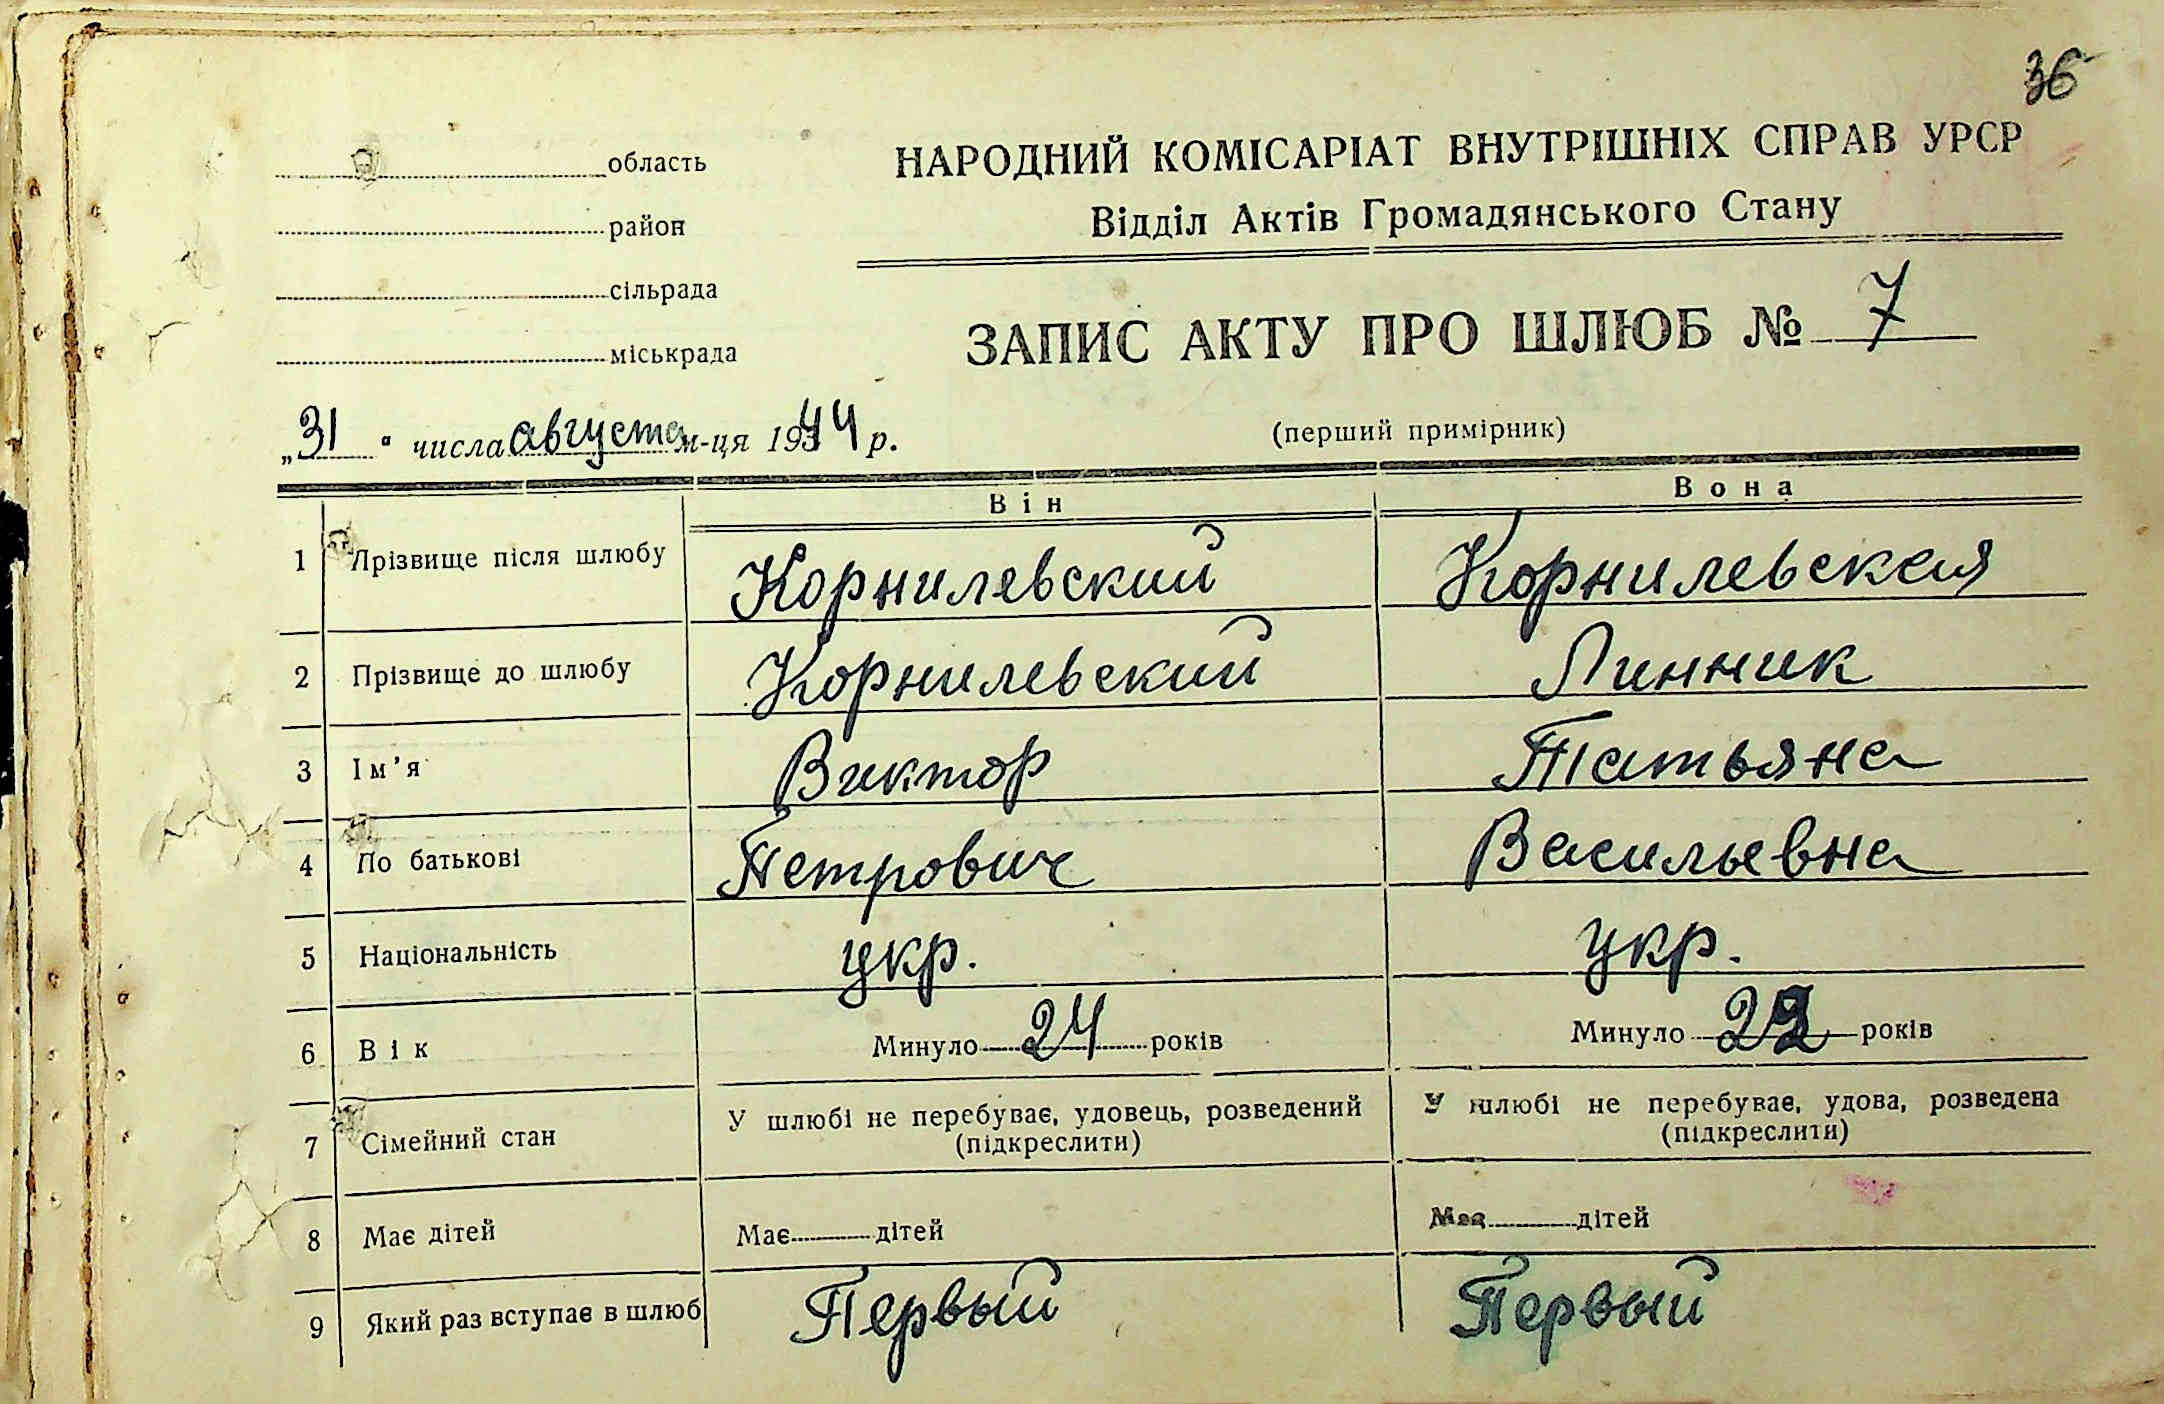 36
область
НАРОДНИЙ КОМІСАРІАТ ВНУТРІШНІХ СПРАВ УРСР
район
Відділ Актів Громадянського Стану
сільрада
ЗАПИС АКТУ ПРО ШЛЮБ № 7
міськрада
„31" числа августа м-ця 1944 р.
(перший примірник)
Він Вона
1 Прізвище після шлюбу Корнилевский Корнилевская
2 Прізвище до шлюбу Корнилевский Линник
3 Ім'я Виктор Татьяна
4 По батькові Петрович Васильевна
5 Національність укр. укр.
6 Вік Минуло 24 років Минуло 22 років
7 Сімейний стан У шлюбі не перебуває, удовець, розведений У шлюбі не перебуває, удова, розведена
(підкреслити) (підкреслити)
8 Має дітей Має дітей Має дітей
9 Який раз вступає в шлюб Первый Первый